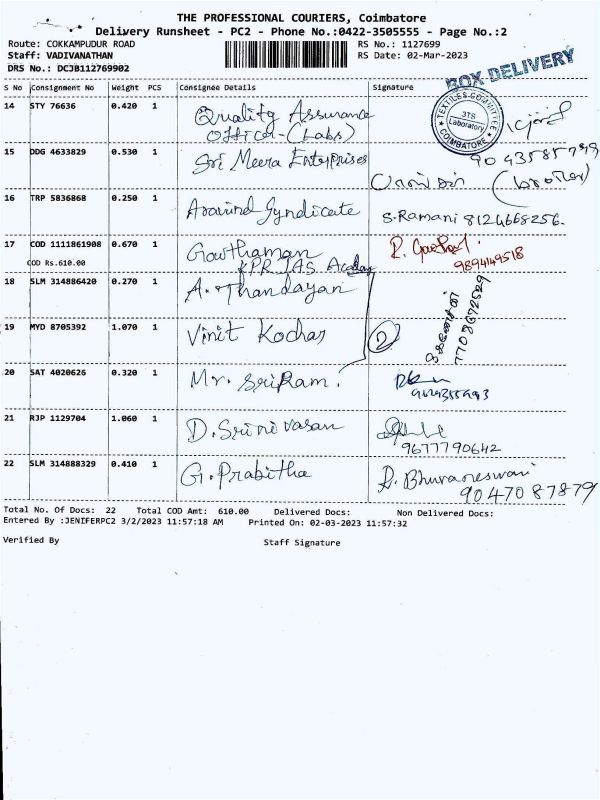 THE PROFESSIONAL COURIERS, Coimbatore
Delivery Runsheet - PC2 - Phone No.:0422-3505555 - Page No.:2
Route: COKKAMPUDUR ROAD
RS No.: 1127699
Staff: VADIVANATHAN
RS Date: 02-Mar-2023
DRS No.: DCJB112769902
BOX DELIVERY
S No Consignment No Weight PCS Consignee Details Signature
14 STY 76636 0.420 1 Quality Assurance
Officer-(Labs)
TEXTILES COMMITTEE
3TS
Laboratory
COIMBATORE
15 DDG 4633829 0.530 1 Sri Meera Enterprises
(brother)
16 TRP 5836868 0.250 1 Aravind Syndicate S.Ramani 8124668256.
17 COD 1111861908 0.670 1 Gowthaman
KPR IAS
COD Rs.610.00
9894149518
18 SLM 314886420 0.270 1 A. Thandayan
19 MYD 8705392 1.070 1 Vinit Kochar 2
7708672529
20 SAT 4020626 0.320 1 Mr. SriRam.
21 RJP 1129704 1.060 1 D. Srinivasan
9677790642
22 SLM 314888329 0.410 1 G. Prabitha D. Bhuvaneswari
9047087879
Total No. Of Docs: 22 Total COD Amt: 610.00 Delivered Docs: Non Delivered Docs:
Entered By :JENIFERPC2 3/2/2023 11:57:18 AM Printed On: 02-03-2023 11:57:32
Verified By Staff Signature